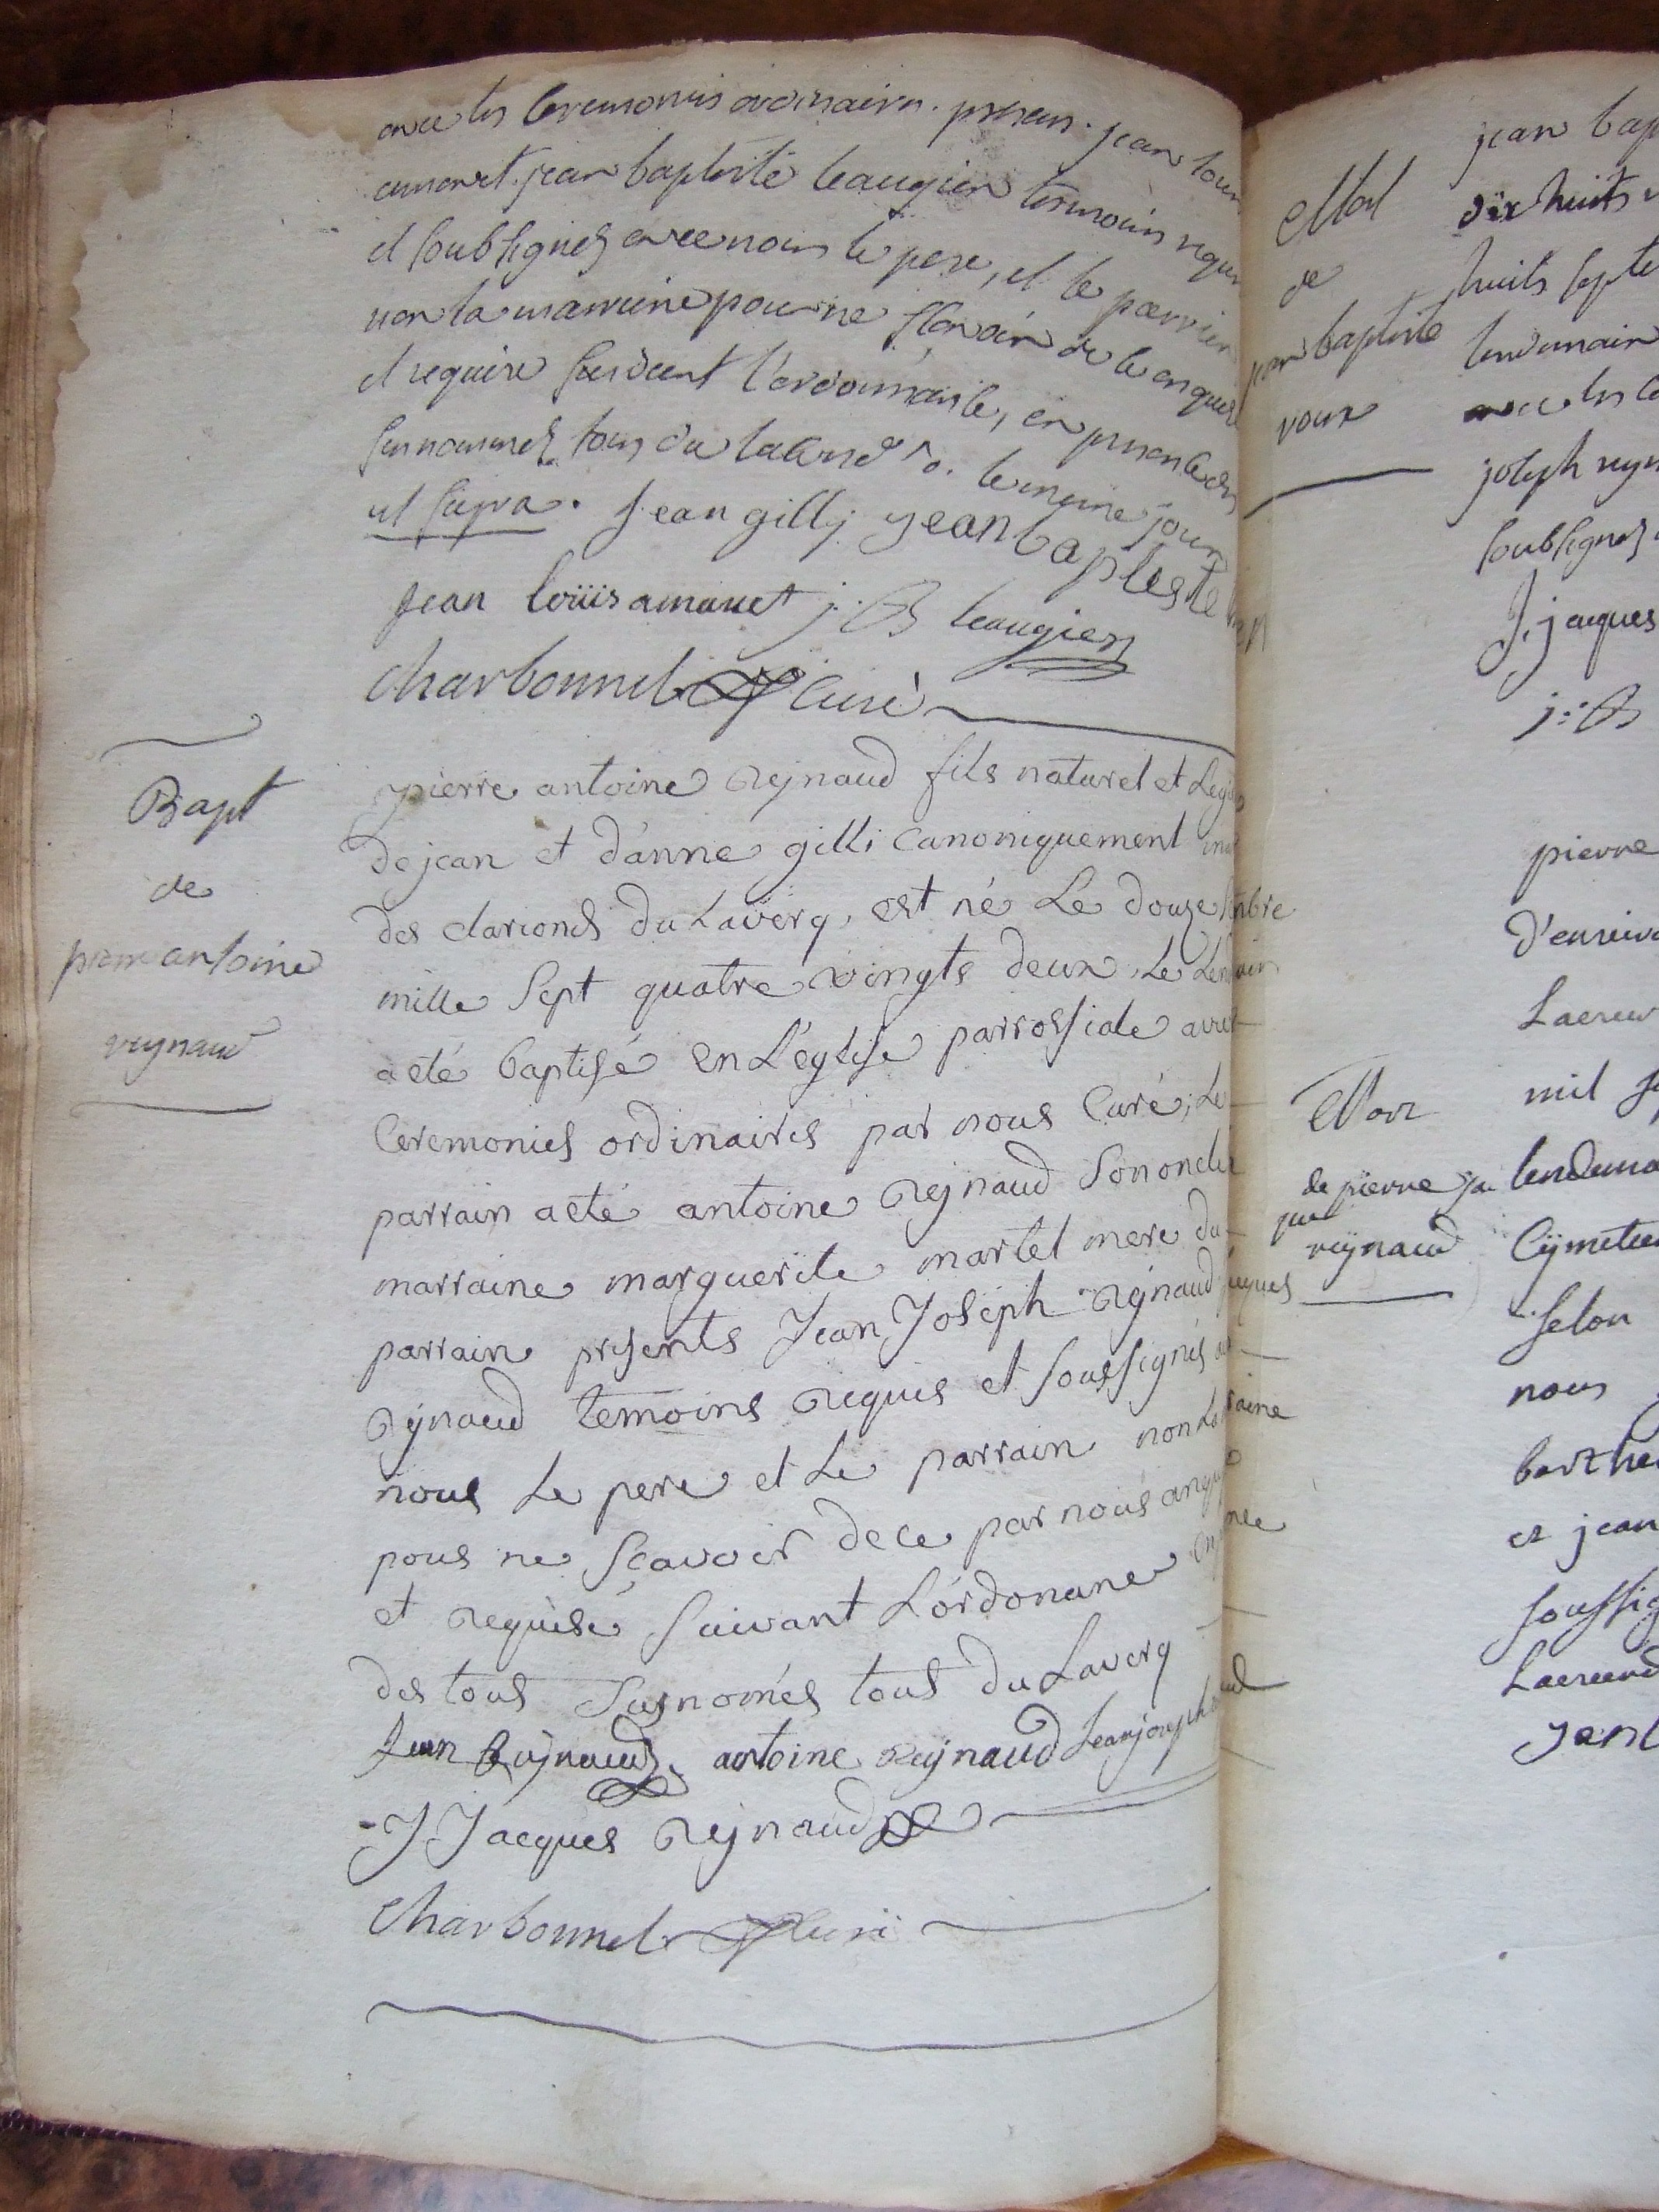 avec les ceremonies ordinaires. presens. jean loui
amavet. jean baptiste leaugier temoins requi
et soubsignés avec nous le pere, et le parrein
non la marreine pour ne sçavoir de ce enquis
et requise suivent l'ordonnance, en presence des
surnommés tous du laverq. le meme jour
ut supra. Jean gilly jean baptiste
jean loüis amavet j: B leaugier
Charbonnel Curé
Bapt
de
pierre antoine
reynaud
pierre antoine reynaud fils naturel et Legi
de jean et d'anne gilli Canoniquement
des clarionds du Laverq, est né Le douze
mille sept quatre vingts deux, Le
a eté baptisé en L'eglise parrossiale avec
Ceremonies ordinaires par nous Curé; Le
parrain a eté antoine reynaud son oncle
marraine marguerite martel mere du
parrain presents Jean Joseph reynaud
reynaud temoins requis et soussignés
nous Le pere et Le parrain non La
pous ne sçavoir de ce par nous
et requisé suivant L'ordonane
des tous susnomés tous du Laverq
Jean Reynaud antoine reynaud Jean joseph
J Jacques reynaud
Charbonnel Curé
jean bap
Mort
de
baptiste
roux
dix huits
huits septe
lendemain
avec les ce
joseph reyn
soubsignés
J. jacques
j: B
pierre
Laverq
mil s
Mort
de pierre ja
ques
reynaud
lendema
Cymetie
selon
nous
barthe
et jean
soussig